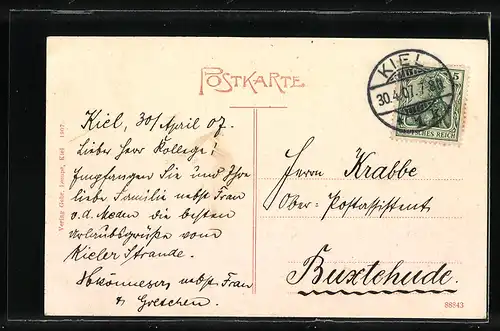 POSTKARTE
KIEL
30.4.07.7-8N
5
DEUTSCHES REICH
Kiel, 30/April 07.
Lieber Herr Kollege!
Empfangen Sie und Ihre
liebe Familie nebst Frau
a.d. Meden die besten
Urlaubsgrüße vom
Kieler Strande.
nebst Frau
& Gretchen.
Herrn Krabbe
Ober-Postassistent
Buxtehude.
Verlag Gebr. Lempe, Kiel 1907
88843